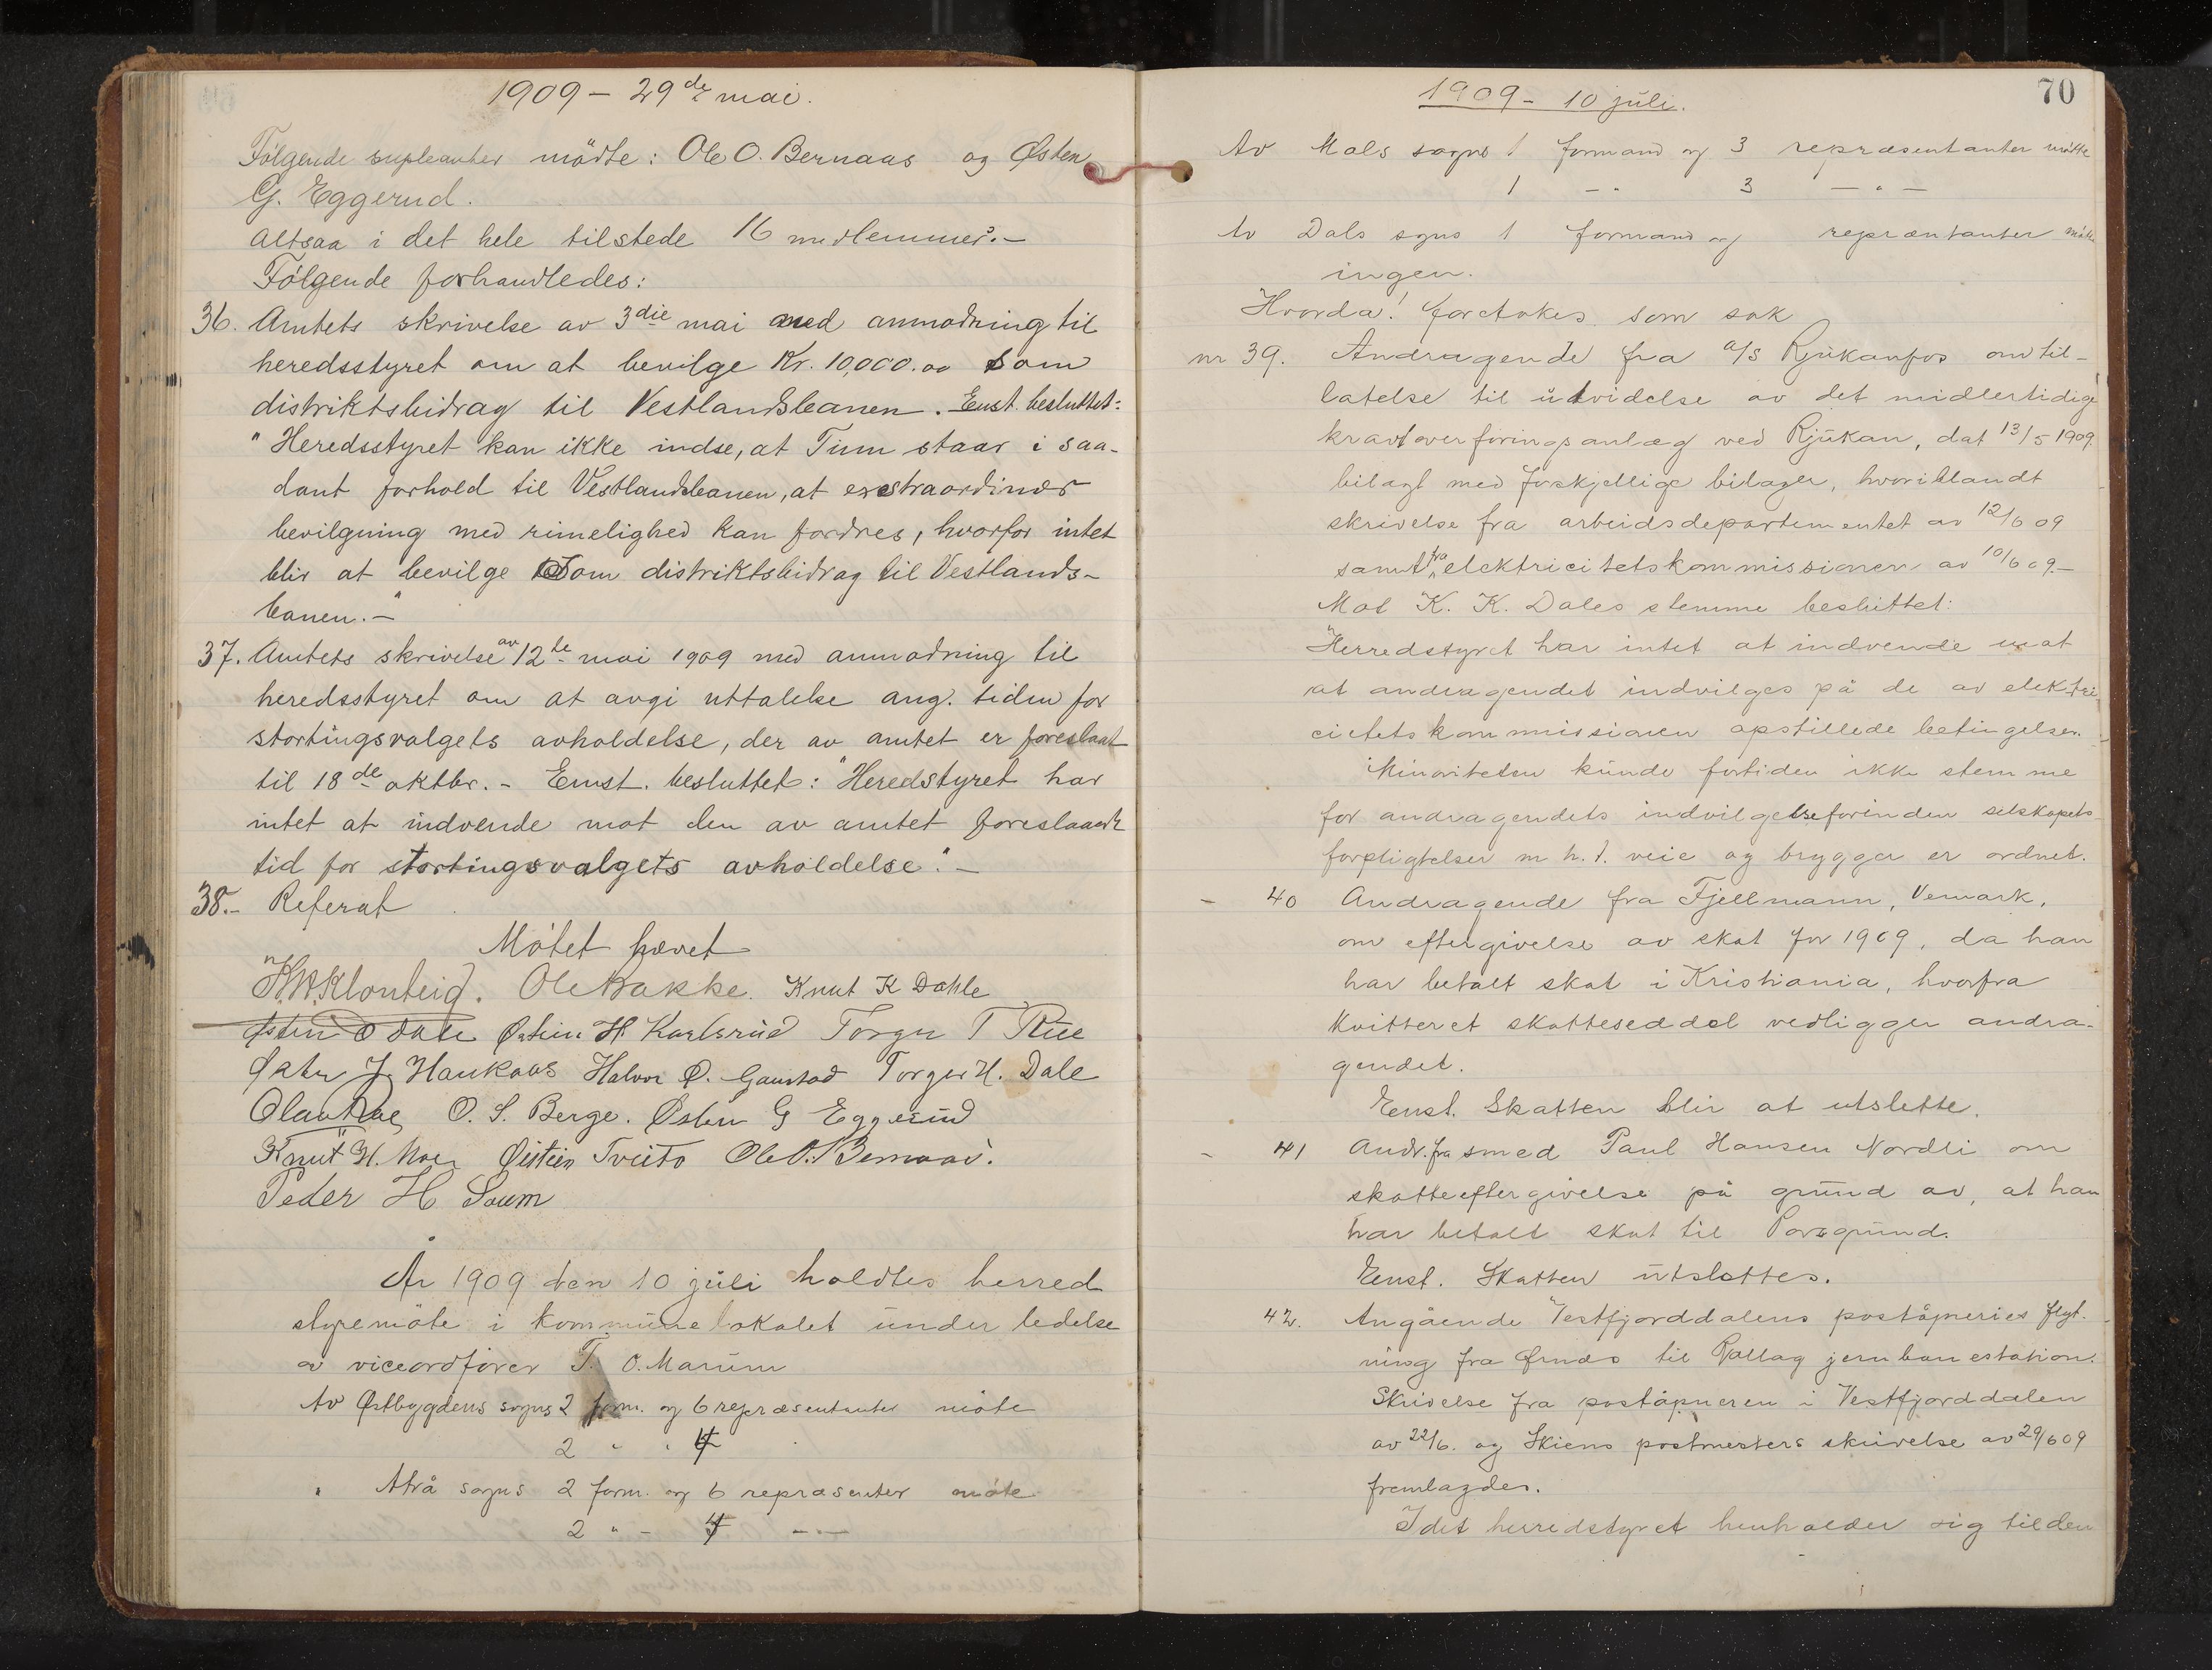 1909 – 29de mai.
Følgende supleanter mödte: Ole O. Bernaas og Østen
G. Eggerud.
altsaa i det hele tilstede 16 medlemmer. –
Følgende forhandledes:
36. Amtets skrivelse av 3die mai med anmodning til
heredsstyret om at bevilge Kr. 10,000.00 som
distriktsbidrag til Vestlandsbanen. Enst. besluttet:
"Heredsstyret kan ikke indse, at Tinn staar i saa-
dant forhold til Vestlandsbanen, at exstraordinær
bevilgning med rimelighed kan fordres, hvorfor intet
blir at bevilge som distriktsbidrag til Vestlands-
banen." –
37. Amtets skrivelse av 12te mai 1909 med anmodning til
heredsstyret om at avgi uttalelse ang. tiden for
stortingsvalgets avholdelse, der av amtet er foreslaat
til 18de oktbr. – Enst. besluttet: "Heredstyret har
intet at indvende mot den av amtet foreslaaede
tid for stortingsvalgets avholdelse". –
38. – Referat
Mötet hævet
Ole Bakke. Knut K Dahle
Østen O Dale Østein H Karlsrud Torger T Rue
Østen J Haukaas Halvor Ø. Gaustad Torger H. Dale
Olav Rue O. S. Berge. Østen G Eggerud
Knut H. Moen Øistein Tveito Ole O. Bernaas.
Peder H Soum
År 1909 den 10 juli holdtes herred
styremöte i kommunelokalet under ledelse
av viceordförer T. O. Marum
Av Østbygdens sogns 2 form. og 6 repræsentanter möte
2 " " 4
" Atrå sogns 2 form. og 6 repræsenter möte
2 " – 4 – " –
70
1909 – 10 juli.
Av Mæls sogns 1 formand og 3 repræsentanter mötte
1 – " 3 – " –
Av Dals sogns 1 formand og repræntanter möte
ingen.
Hvorda! foretokes som sak
nr 39. Andragende fra a/s Rjukanfos om til-
latelse til utvidelse av det midlertidige
kraftoverföringsanlæg ved Rjukan, dat 13/5 1909.
bilagt med forskjellige bilager, hvoriblandt
skrivelse fra arbeidsdepartementet av 12/6 09
samt fra elektricitetskommissionen av 10/6 09. –
Mot K. K. Dales stemme besluttet:
"Herredstyret har intet at indvende mot
at andragendet indvilges på de av elektri
citetskommissionen opstillede betingelser.
Minoriteten kunde fortiden ikke stemme
for andragendets indvilgelse forinden selskapets
forpligtelser m. h. t. veie og brygger er ordnet.
– 40 Andragende fra Fjellmann, Vemark,
om eftergivelse av skat for 1909, da han
har betalt skat i Kristiania, hvorfra
kvitteret skatteseddel vedligger andra-
gendet.
Enst. Skatten blir at utslette.
– 41 Andr. fra smed Paul Hansen Nordli om
skatteeftergivelse på grund av, at han
har betalt skat til Porsgrund.
Enst. Skatten utslettes.
42. Angående Vestfjorddalens poståpneries flyt.
ning fra Ørnes til Rollag jernbanestation.
Skrivelse fra poståpneren i Vestfjorddalen
av 22/6. og Skiens postmesters skrivelse av 29/6 09
fremlagdes.
Idet herredstyret henholder sig til den